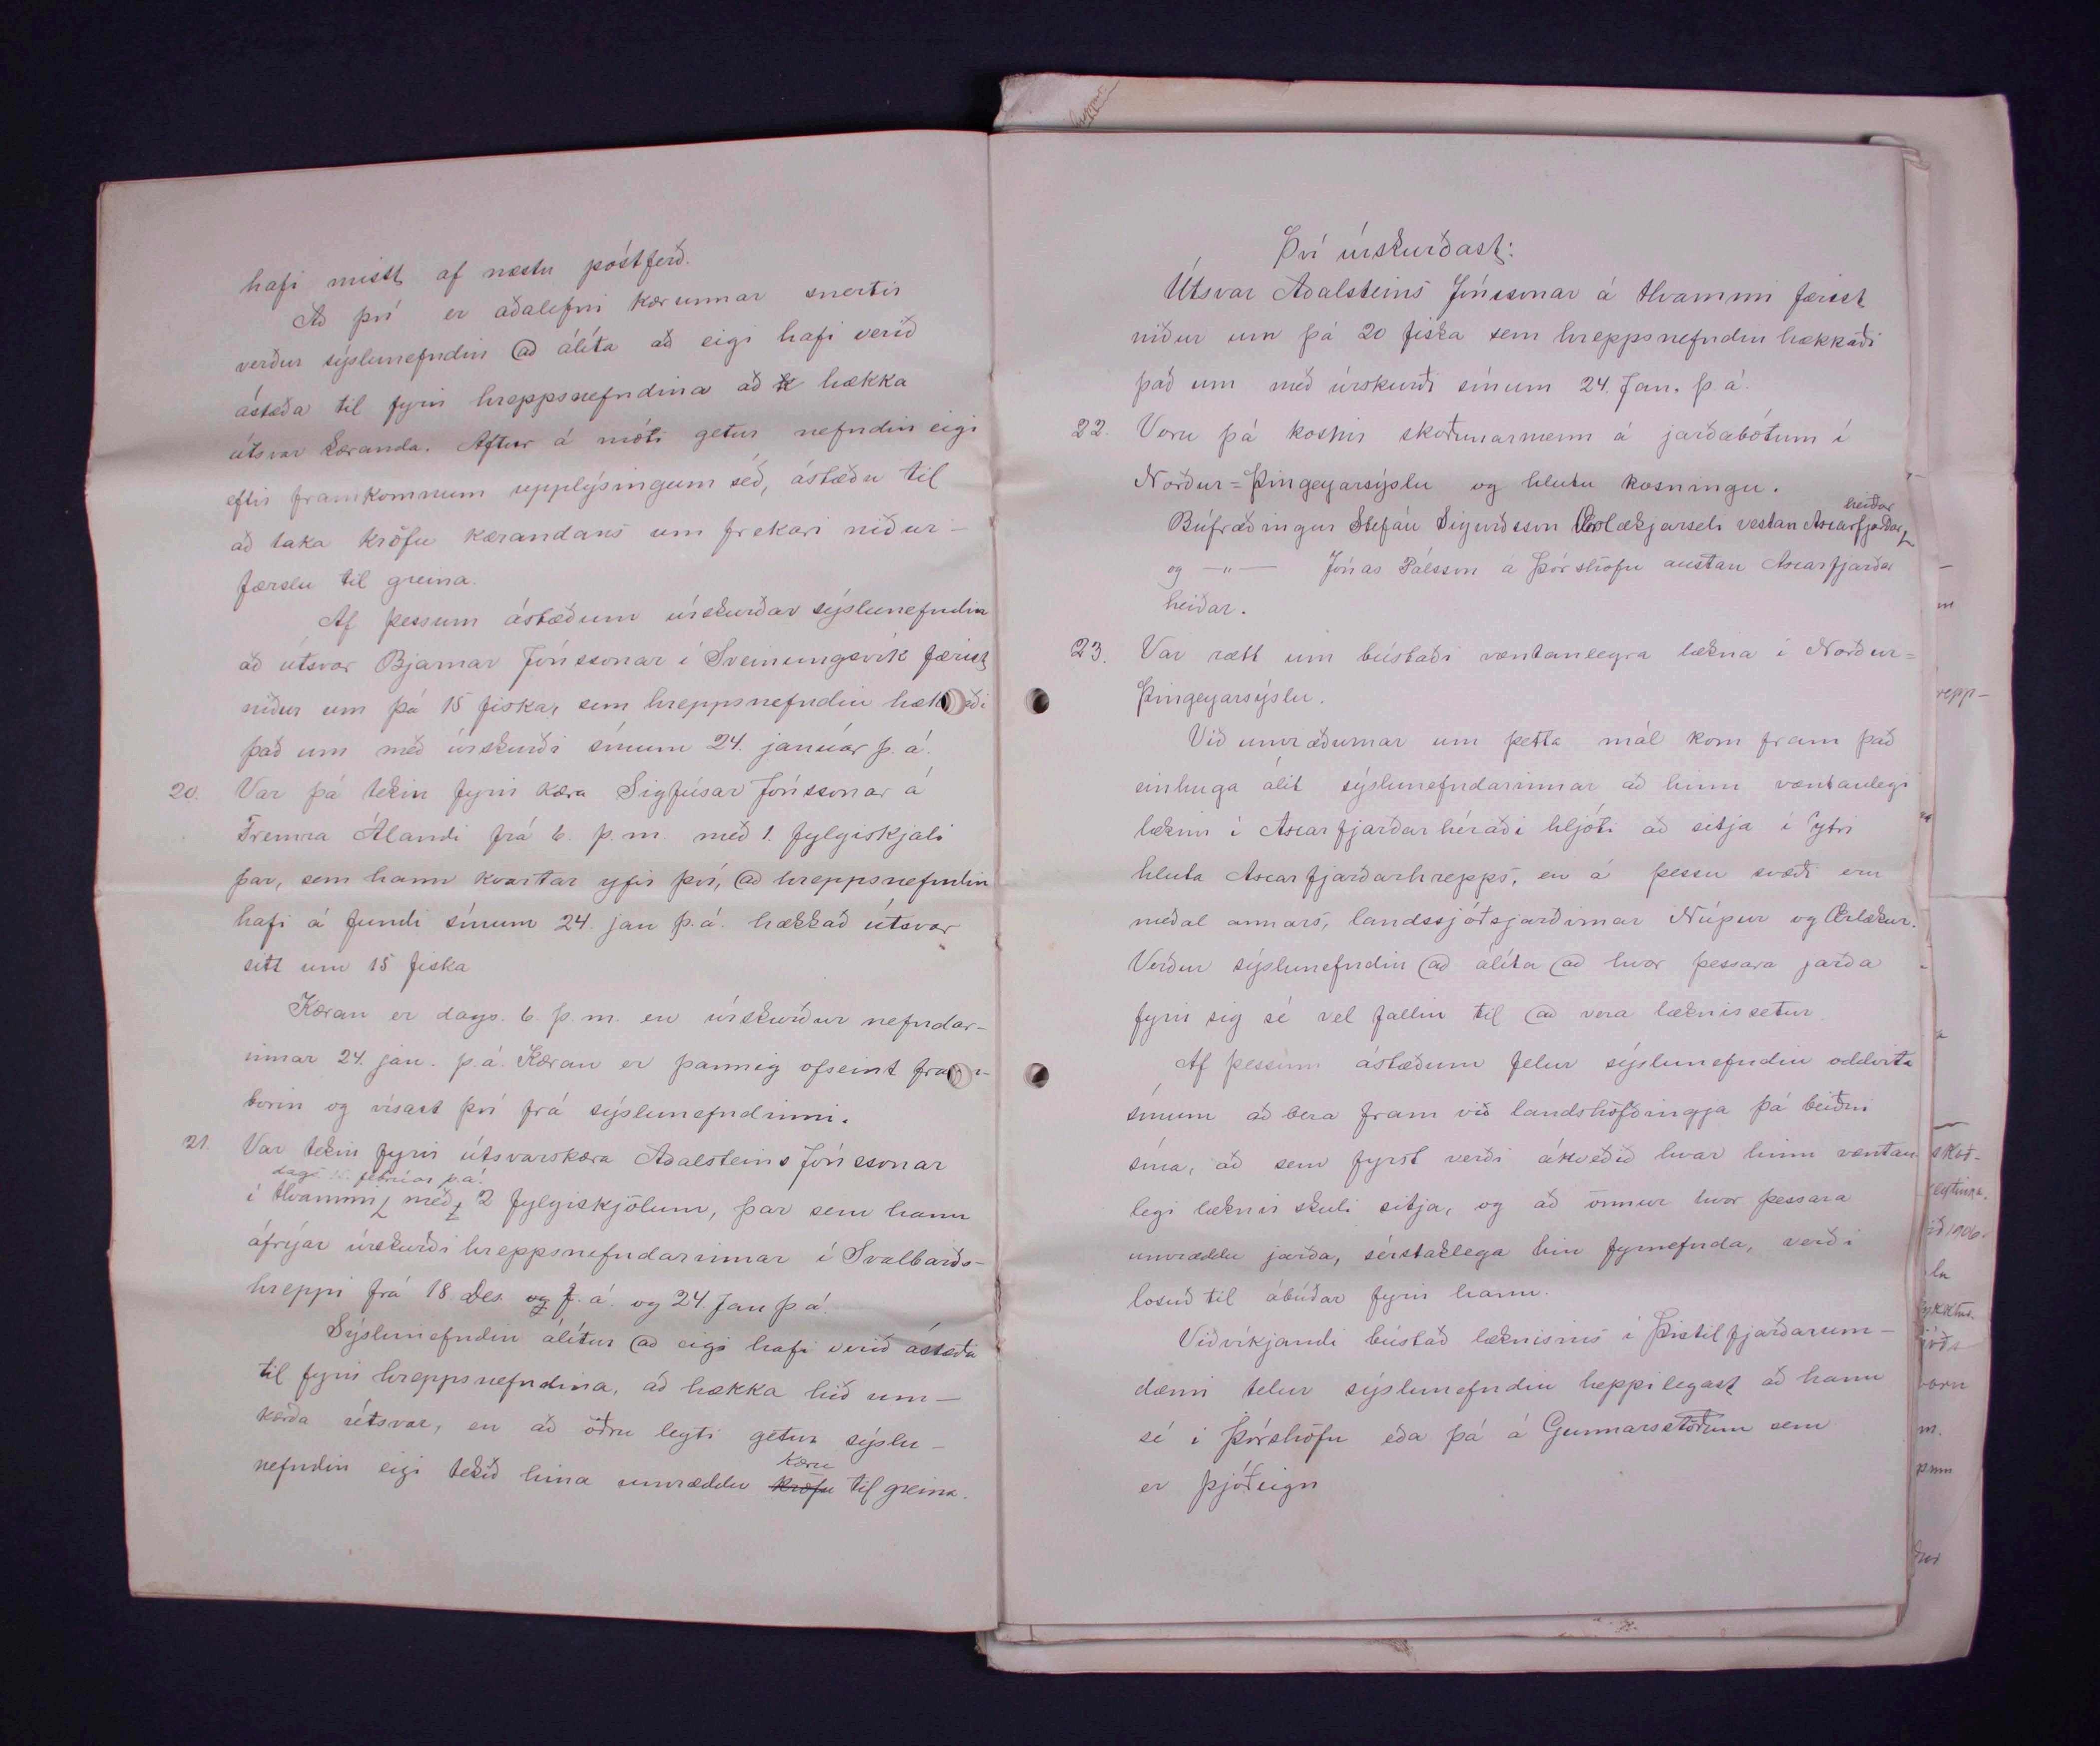 hafi misst af næstu póstferð.
Að því er aðalefni kærunnar snertir
verður sýslunefndin að álíta að eigi hafi verið
ástæða til fyrir hreppsnefndina að hækka
útsvar kæranda. Aftur á móti getur nefndin eigi
eftir framkomnum upplýsingum séð, ástæðu til
að taka kröfu kærandans um frekari niður-
færslu til greina.
Af þessum ástæðum úrskurðar sýslunefndin
að útsvar Bjarnar Jónssonar í Sveinungsvík færist
niður um þá 15 fiska, sem hreppsnefndin hækkaði
það um með úrskurði sínum 24. janúar þ. á.
20. Var þá tekin fyrir kæra Sigfúsar Jónssonar á
Fremra Álandi frá 6. þ. m. með 1. fylgiskjali
þar, sem hann kvartar yfir því, að hreppsnefndin
hafi á fundi sínum 24. jan þ. á. hækkað útsvar
sitt um 15 fiska
Kæran er dags. 6. þ. m. en úrskurður nefndar-
innar 24. jan. þ. á. Kæran er þannig ofseint fram-
borin og vísast því frá sýslunefndinni.
21. Var tekin fyrir útsvarskæra Aðalsteins Jónssonar
dags. febrúar þ. á.
í Hvammi, með 2 fylgiskjölum, þar sem hann
áfrýjar úrskurði hreppsnefndarinnar í Svalbarðs-
hreppi frá 18. Des. og f. á. og 24 Jan þ á.
Sýslunefndin álítur að eigi hafi verið ástæða
til fyrir hreppsnefndina, að hækka hið um-
kærða útsvar, en að öðru leyti getur sýslu-
kæru
nefndin eigi tekið hina umræddu kröfu til greina.
Því úrskurðast:
Útsvar Aðalsteins Jónssonar á Hvammi færist
niður um þá 20 fiska sem hreppsnefndin hækkaði
það um með úrskurði sínum 24. Jan. þ á.
22. Voru þá kosnir skoðunarmenn á jarðabótum í
Norður=Þingeyarsýslu og hlutu kosningu.
heiðar
Búfræðingur Stefán Sigurðsson Ærlækjarseli vestan Axarfjarðar
og —"— Jónas Pálsson á Þórshöfn austan Axarfjarðar
heiðar.
23. Var rætt um bústaði væntanlegra lækna í Norður=
Þingeyarsýslu.
Við umræðurnar um þetta mál kom fram það
einhuga álit sýslunefndarinnar að hinn væntanlegi
læknir í Axarfjarðarhéraði hljóti að sitja í ytri
hluta Axarfjarðarhrepps, en á þessu svæði eru
meðal annars, landssjóðsjarðirnar Núpur og Ærlækur.
Verður sýslunefndin að álíta að hvor þessara jarða
fyrir sig sé vel fallin til að vera læknissetur.
Af þessum ástæðum felur sýslunefndin oddvita
sínum að bera fram við landshöfðingja þá beiðni
sína, að sem fyrst verði ákveðið hvar hinn væntan
legi læknir skuli sitja, og að önnur hvor þessara
umræddu jarða, sérstaklega hin fyrnefnda, verði
losuð til ábúðar fyrir hann.
Viðvíkjandi bústað læknisins í Þistilfjarðarum-
dæmi telur sýslunefndin heppilegast að hann
sé í Þórshöfn eða þá á Gunnarsstöðum sem
er þjóðeign